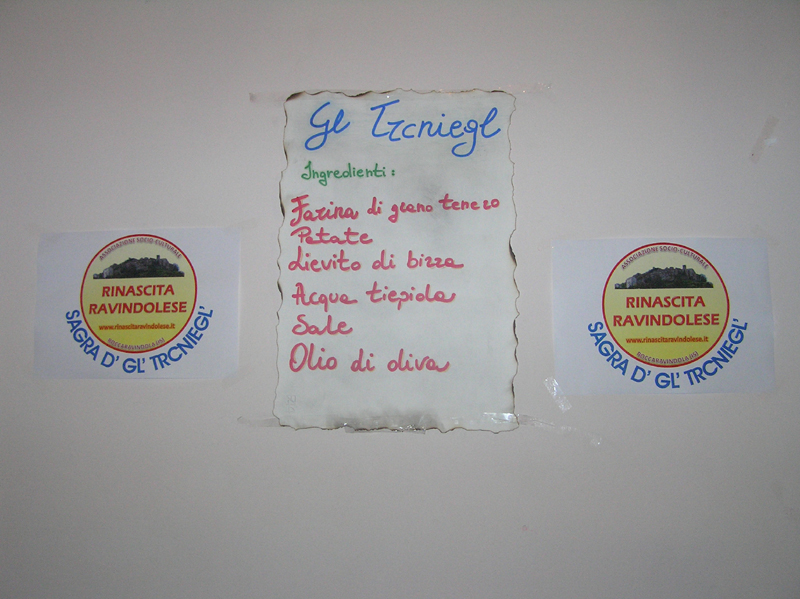 Gl Trcniegl
Ingredienti:
Farina di grano tenero
Patate
Lievito di birra
Acqua tiepida
Sale
Olio di oliva
ASSOCIAZIONE SOCIO-CULTURALE
RINASCITA
RAVINDOLESE
www.rinascitaravindolese.it
ROCCARAVINDOLA (IS)
SAGRA D' GL' TRCNIEGL'
ASSOCIAZIONE SOCIO-CULTURALE
RINASCITA
RAVINDOLESE
www.rinascitaravindolese.it
ROCCARAVINDOLA (IS)
SAGRA D' GL' TRCNIEGL'